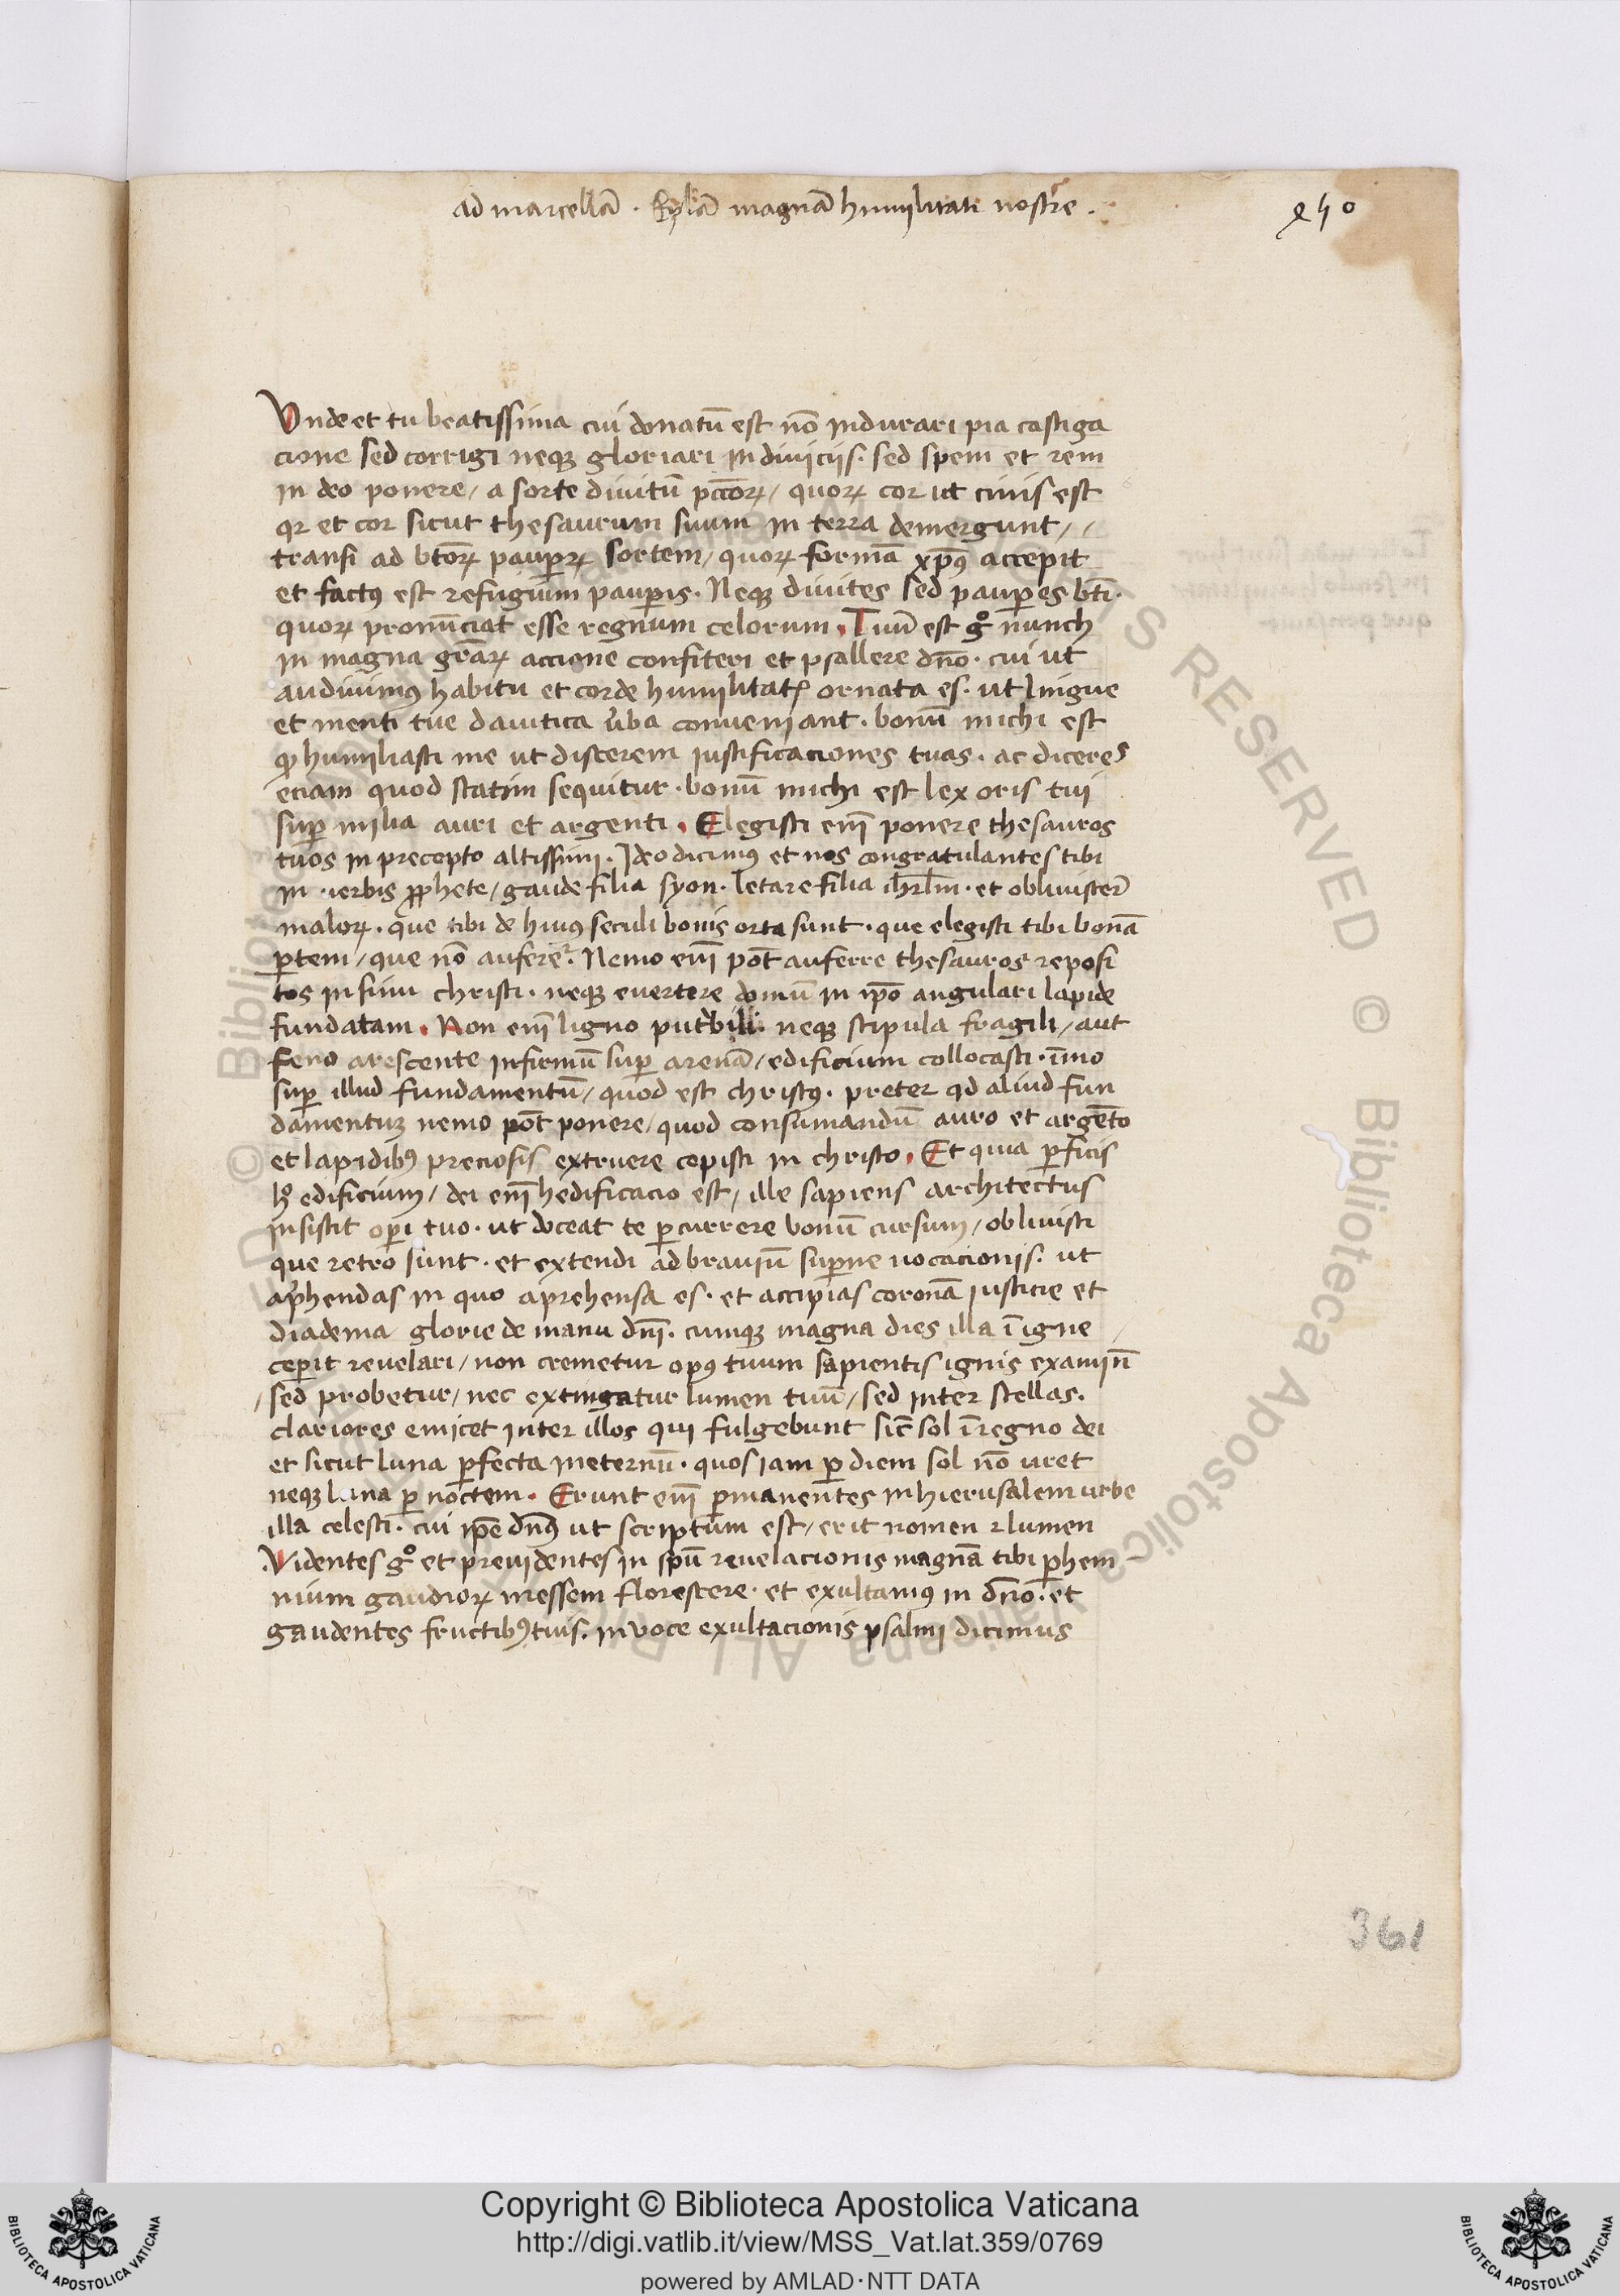 ad marcellā . Ep̄lā magnā humilitati nostre .
Vnde et tu beatissima cui donatū est nō indurari pia castiga
cione sed corrigi neqꝫ gloriari in diuiciis. sed spem et rem
in deo ponere / a sorte diuitū pcc̄oꝝ / quoꝝ cor ut cinis est
qꝛ et cor sicut thesaurum suum in terra demergunt / /
transi ad bt̄oꝝ paup̄ꝝ sortem / quoꝝ formā xp̄ꝰ accepit
et factꝰ est refugium paup̄is. Neqꝫ diuites sed paup̄es bt̄i.
quoꝝ pronūciat esse regnum celorum. Tuū est gͦ nunch
in magna gr̄aꝝ accione confiteri et psallere dn̄o. cui ut
audiuimꝰ habitu et corde humilitatꝭ ornata es. ut lingue
et menti tue dauitica ūba conueniant. bonū michi est
ꝙ humiliasti me ut discerem iustificaciones tuas. ac diceres
eciam quod statim sequitur. bonū michi est lex oris tui
suꝑ milia auri et argenti. Elegisti em̄ ponere thesauros
tuos in precepto altissimi. Ideo dicimꝰ et nos congratulantes tibi
in uerbis ꝓphete / gaude filia syon. letare filia ihrl̄m. et obliuiscer̄
maloꝝ. que tibi de huiꝰ seculi bonis orta sunt. que elegisti tibi bonā
ꝑtem / que nō auferet᷑. Nemo em̄ pōt auferre thesauros reposi
tos in sinu christi. neqꝫ euertere domū in ip̄o angulari lapide
fundatam. Non em̄ ligno putribili. neqꝫ stipula fragili / aut
feno arescente infirmū suꝑ arenā / edificium collocasti. īmo
suꝑ illud fundamentū / quod est christꝰ. preter qd aliud fun
damentuꝫ nemo pōt ponere / quod consumandū auro et argēto
et lapidibꝰ preciosis extruere cepisti in christo. Et quia ꝑficis
hͦ edificium / dei em̄ hedificacio est / ille sapiens architectus
insistit oꝑi tuo. ut doceat te ꝑcurrere bonū cursum / obliuisci
que retro sunt. et extendi ad brauiū suꝑne uocacionis. ut
ap̄hendas in quo aprehensa es. et accipias coronā iusticie et
diadema glorie de manu dn̄i. cumqꝫ magna dies illa ī igne
ceperit reuelari / non cremetur opꝰ tuum sapientis ignis examin̄
/ sed probetur / nec extingatur lumen tuū / sed inter stellas.
clariores emicet inter illos qui fulgebunt sic̄ sol ī regno dei
et sicut luna ꝑfecta in eternū. quos iam ꝑ diem sol nō uret
neqꝫ luna ꝑ noctem. Erunt em̄ ꝑmanentes in hierusalem urbe
illa celesti. cui ip̄e dn̄ꝰ ut scriptum est / erit nomen ⁊ lumen
Videntes gͦ et preuidentes in sp̄u reuelacionis magnā tibi ꝑhem
nium gaudioꝝ messem florescere. et exultamꝰ in dn̄o. et
gaudentes fructibꝰ tuis. in uoce exultacionis psalmi dicimus
361
Copyright © Biblioteca Apostolica Vaticana
http://digi.vatlib.it/view/MSS_Vat.lat.359/0769
powered by AMLAD·NTT DATA
BIBLIOTECA APOSTOLICA VATICANA
BIBLIOTECA APOSTOLICA VATICANA